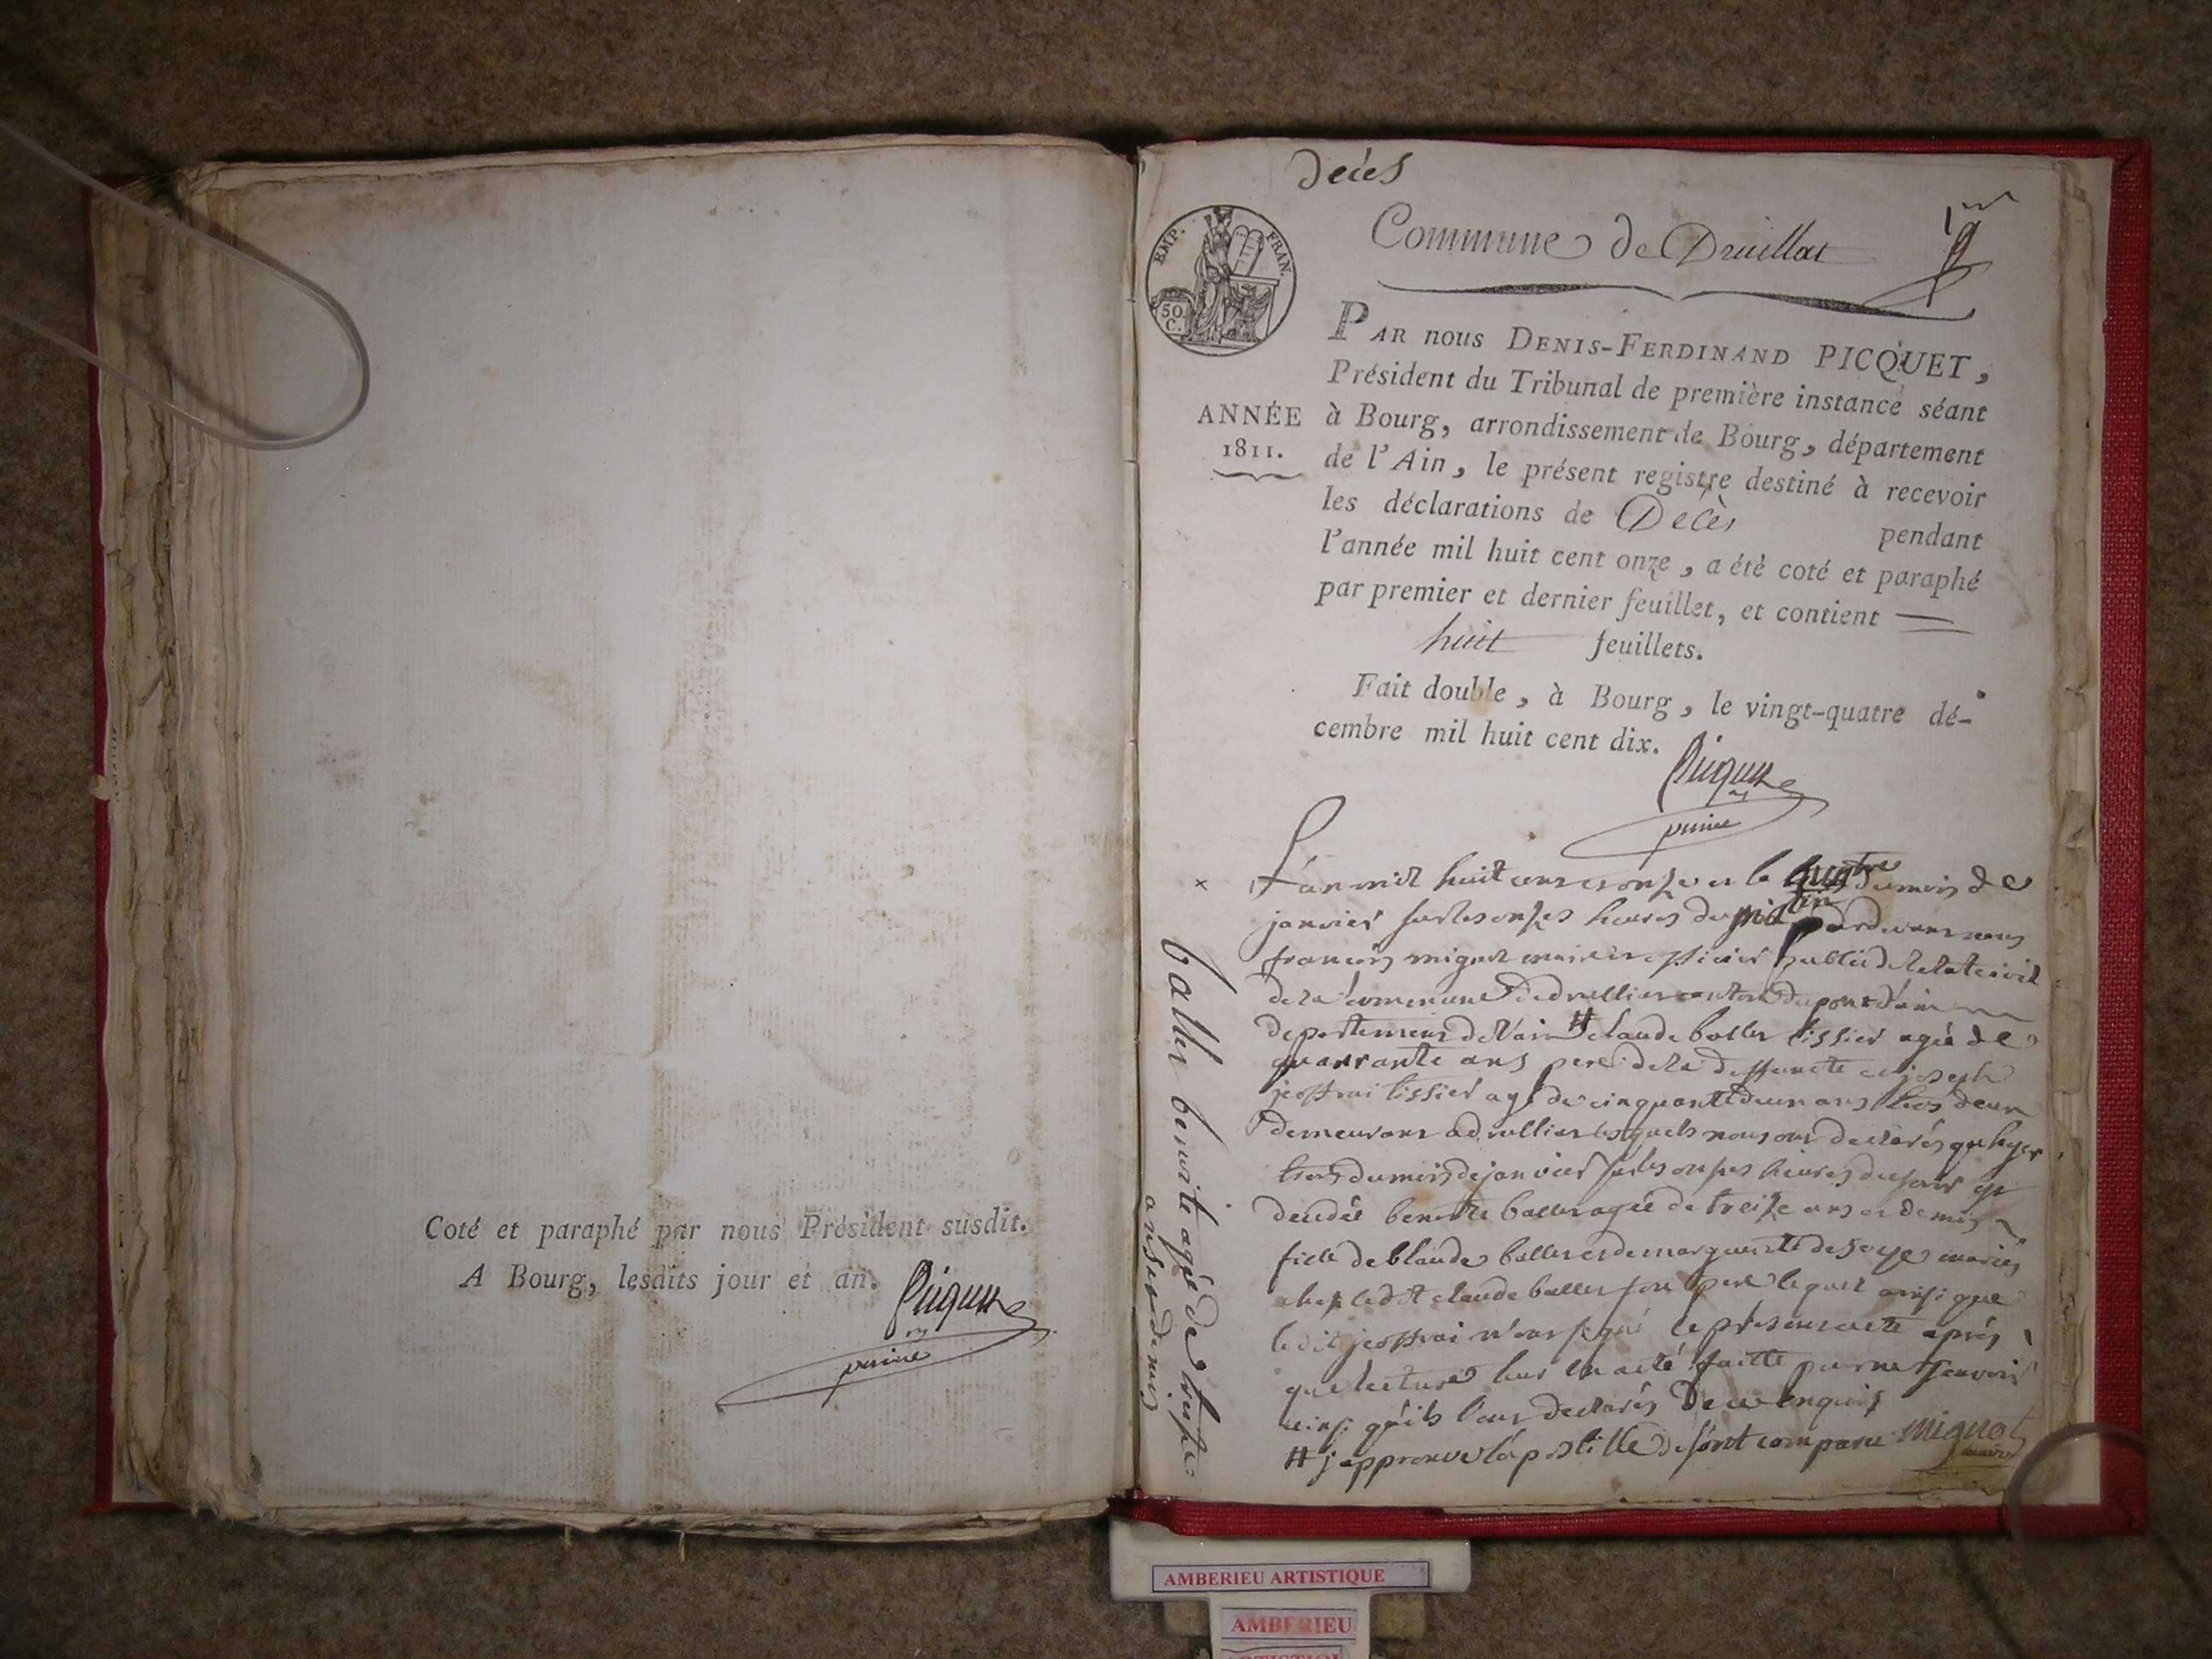 Coté et paraphé par nous Président susdit.
A Bourg, lesdits jour et an.
Picquet
décès
Commune de Druillat
1er
EMP. FRAN.
50 C.
ANNÉE
1811.
PAR nous DENIS-FERDINAND PICQUET,
Président du Tribunal de première instance séant
à Bourg, arrondissement de Bourg, département
de l'Ain, le présent registre destiné à recevoir
les déclarations de Décès pendant
l'année mil huit cent onze, a été coté et paraphé
par premier et dernier feuillet, et contient
huit feuillets.
Fait double, à Bourg, le vingt-quatre dé-
cembre mil huit cent dix.
Picquet
L'an mil huit cent et onze et le quatre du mois de
janvier sur les onzes heures du matin pardevant nous
françois mignot maire et officier public de l'etat civil
de la commune de drullias canton du pont d'ain
departement de l'ain # claude ballet tissier agé de
quarrante ans pere de la deffuncte et joseph
tissier agé de cinquante deux ans tous deux
demeurant a drullias lesquels nous ont declarés que hyer
trois du mois de janvier sur les onzes heures du soir est
decedée benoite ballet agée de treize ans et demis
fielle de claude ballet et de marguerite mariés
chez ledit claude ballet son pere lequel ainsi que
ledit n'ont signé le présent acte après
que lecture leur en a eté faitte pour ne sçavoir
ainsi qu'ils l'ont declarés de ce enquis
# j'approuve l'apostille de sont comparu mignot
maire
ballet benoite agée de treize
ans et demis
AMBERIEU ARTISTIQUE
AMBERIEU
ARTISTIQUE